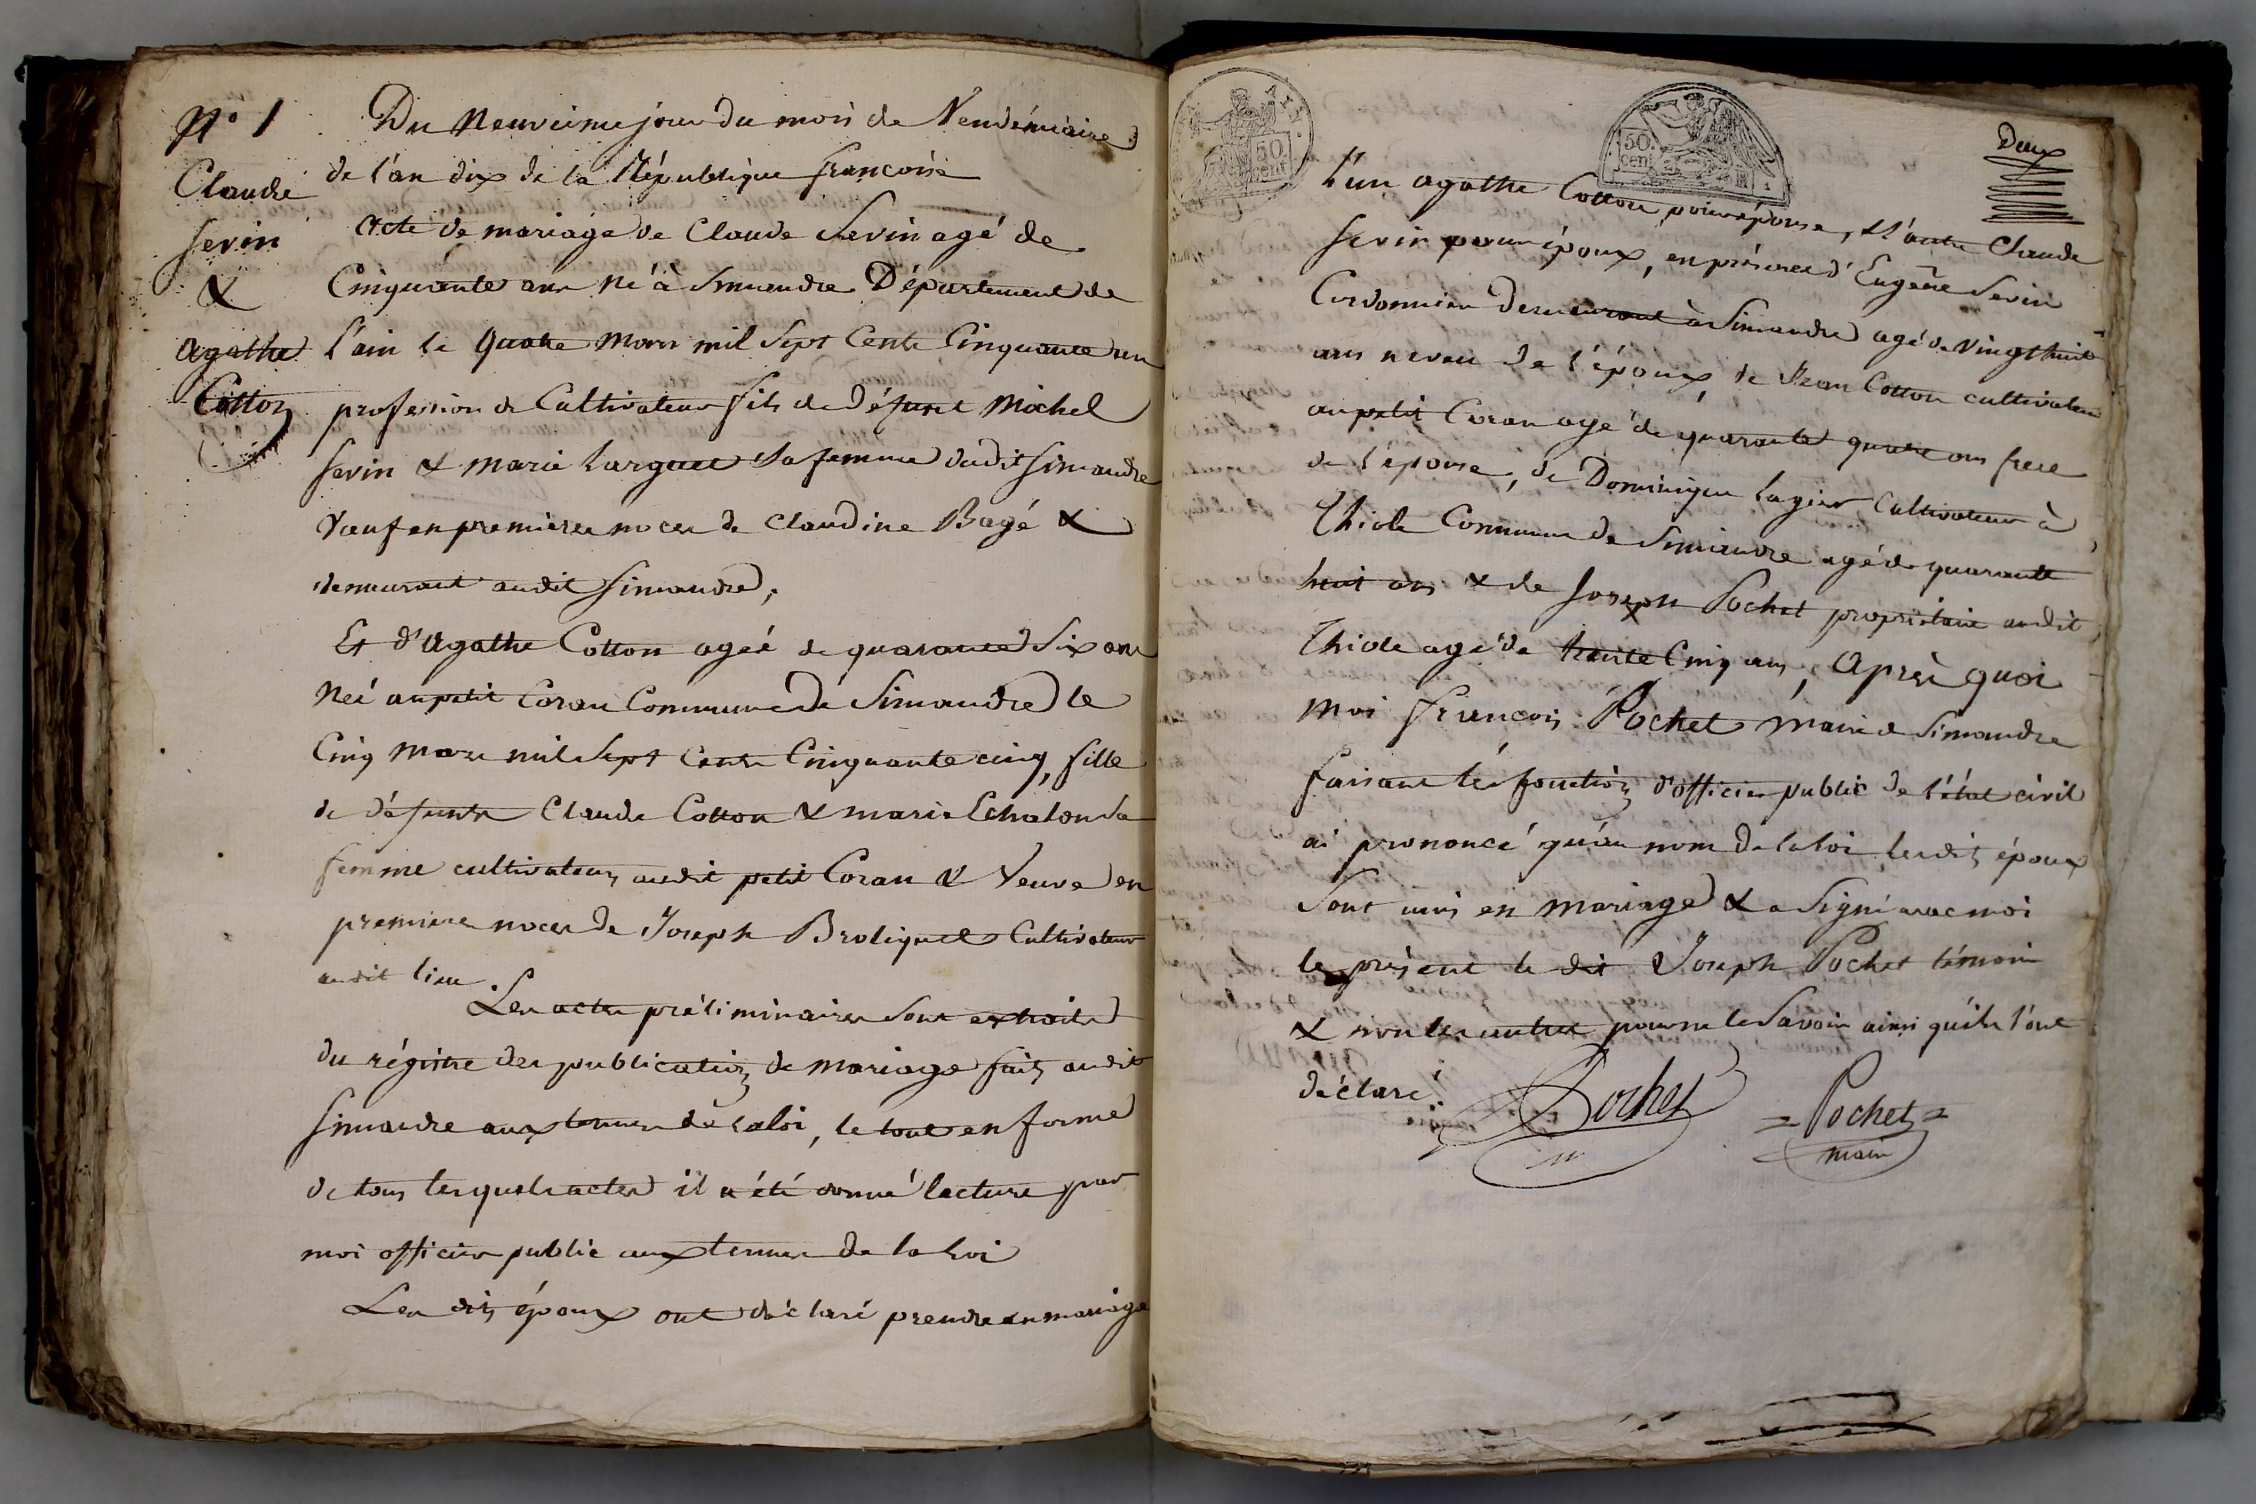 N° 1
Claude
Sevin
&
Agathe
Cotton
Du Neuvieme jour du mois de Vendémiaire
de l'an dix de la République françoise
Acte de mariage de Claude Sevin agé de
Cinquante ans né à Simandre Département de
l'ain le Quatre Mars mil Sept Cents Cinquante un
profession de Cultivateur fils de Défunct Michel
Sevin & Marie Larguet Sa femme dudit Simandre
Veuf en premieres noces de Claudine Bagé &
demeurant audit Simandre,
Et d'Agathe Cotton agéé de quarante Six ans
Neé au petit Coran Commune de Simandre le
Cinq Mars mil Sept Cents Cinquante cinq, fille
de défunts Claude Cotton & Marie Echalon Sa
femme cultivateurs audit petit Coran & Veuve en
premieres noces de Joseph Broliquet Cultivateur
audit lieu
Les actes préliminaires Sont extraits
du régistre des publications de mariage faits audit
Simandre aux termes de la loi, le tout en forme
de tous lesquels actes il a été donné lecture par
moi officier public aux termes de la Loi
Les dits époux ont déclaré prendre en mariage
50 cent
50 cent
Deux
L'un Agathe Cotton pour épouse, & l'autre Claude
Sevin pour époux, en présence d'Eugêne Sevin
Cordonnier demeurant à Simandre agé de Vingt huit
ans neveu de l'époux, de Jean Cotton cultivateur
au petit Coran agé de quarante quatre ans frere
de l'épouse, de Dominique Lagier Cultivateur à
Thiole Commune de Simandre agé de quarante
huit ans & de Joseph Pochet propriétaire audit
Thiole agé de trente Cinq ans, Après quoi
Moi François Pochet Maire de Simandre
faisant les fonctions d'officier public de l'état civil
ai prononcé qu'au nom de la loi lesdits époux
Sont unis en mariage & a Signé avec moi
le présent le dit Joseph Pochet témoin
& non les autres pour ne le Savoir ainsi qu'ils l'ont
déclaré.
Pochet
= Pochet =
maire